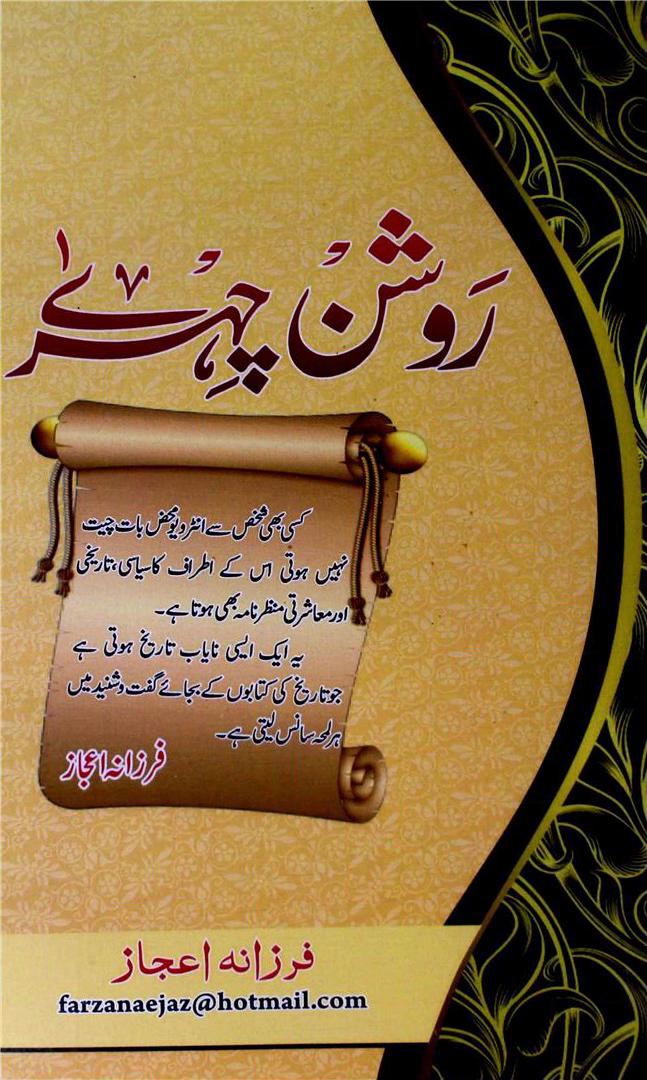 روشن چہرے
کسی بھی شخص سے انٹرویو محض بات چیت
نہیں ہوتی اس کے اطراف کا سیاسی، تاریخی
اور معاشرتی منظر نامہ بھی ہوتا ہے۔
یہ ایک ایسی نایاب تاریخ ہوتی ہے
جو تاریخ کی کتابوں کے بجائے گفت و شنید میں
ہر لمحہ سانس لیتی ہے۔
فرزانہ اعجاز
فرزانہ اعجاز
farzanaejaz@hotmail.com